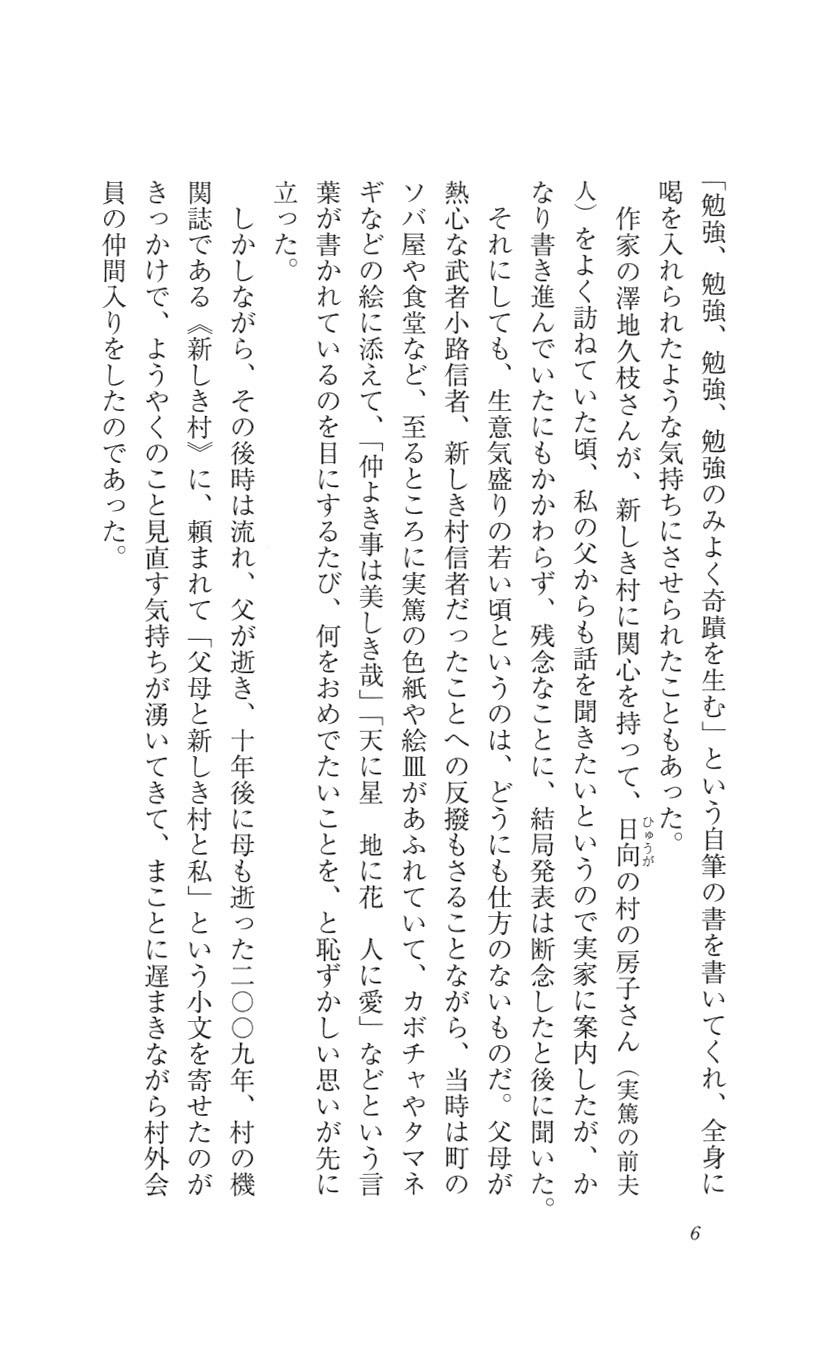 「勉強、勉強、勉強、勉強のみよく奇蹟を生む」という自筆の書を書いてくれ、全身に
喝を入れられたような気持ちにさせられたこともあった。
作家の澤地久枝さんが、新しき村に関心を持って、日向の村の房子さん（実篤の前夫
ひゅうが
人）をよく訪ねていた頃、私の父からも話を聞きたいというので実家に案内したが、か
なり書き進んでいたにもかかわらず、残念なことに、結局発表は断念したと後に聞いた。
それにしても、生意気盛りの若い頃というのは、どうにも仕方のないものだ。父母が
熱心な武者小路信者、新しき村信者だったことへの反撥もさることながら、当時は町の
ソバ屋や食堂など、至るところに実篤の色紙や絵皿があふれていて、カボチャやタマネ
ギなどの絵に添えて、「仲よき事は美しき哉」「天に星　地に花　人に愛」などという言
葉が書かれているのを目にするたび、何をおめでたいことを、と恥ずかしい思いが先に
立った。
しかしながら、その後時は流れ、父が逝き、十年後に母も逝った二〇〇九年、村の機
関誌である《新しき村》に、頼まれて「父母と新しき村と私」という小文を寄せたのが
きっかけで、ようやくのこと見直す気持ちが湧いてきて、まことに遅まきながら村外会
員の仲間入りをしたのであった。
6